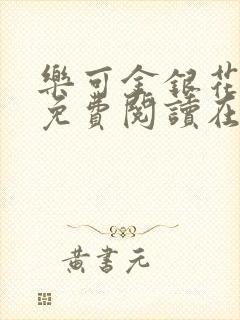 樂可金銀花
免費閱讀在
黃書元